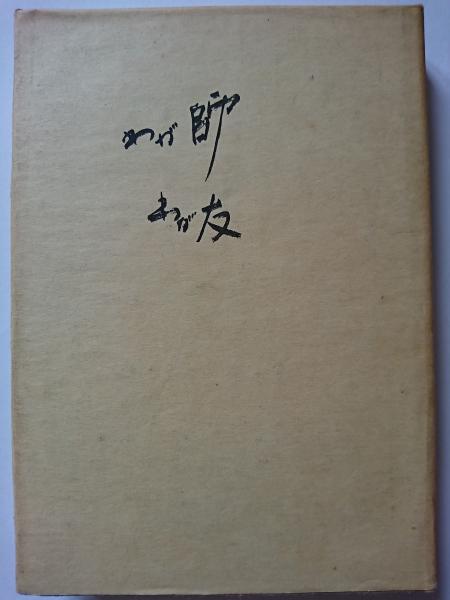 わが師
わが友